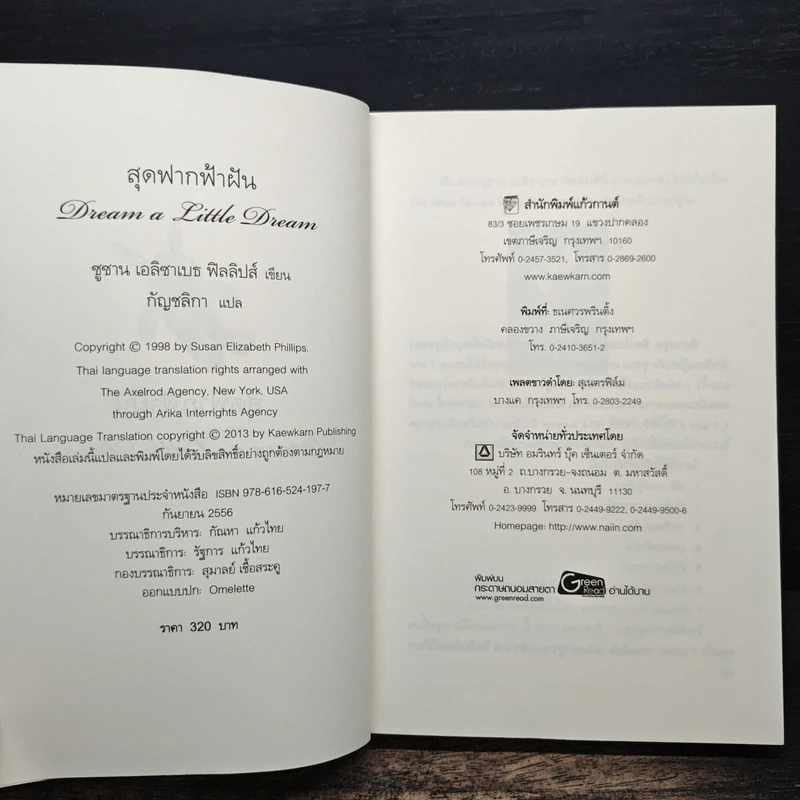 สุดฟากฟ้าฝัน
Dream a Little Dream
ซูซาน เอลิซาเบธ ฟิลลิปส์ เขียน
กัญชลิกา แปล
Copyright © 1998 by Susan Elizabeth Phillips.
Thai language translation rights arranged with
The Axelrod Agency, New York, USA
through Arika Interrights Agency
Thai Language Translation copyright © 2013 by Kaewkarn Publishing
หนังสือเล่มนี้แปลและพิมพ์โดยได้รับลิขสิทธิ์อย่างถูกต้องตามกฎหมาย
หมายเลขมาตรฐานประจำหนังสือ ISBN 978-616-524-197-7
กันยายน 2556
บรรณาธิการบริหาร: กัณหา แก้วไทย
บรรณาธิการ: รัฐการ แก้วไทย
กองบรรณาธิการ: สุมาลย์ เชื้อสระคู
ออกแบบปก: Omelette
ราคา 320 บาท
สำนักพิมพ์แก้วกานต์
83/3 ซอยเพชรเกษม 19 แขวงปากคลอง
เขตภาษีเจริญ กรุงเทพฯ 10160
โทรศัพท์ 0-2457-3521, โทรสาร 0-2869-2600
www.kaewkarn.com
พิมพ์ที่: ธเนศวรพรินติ้ง
คลองขวาง ภาษีเจริญ กรุงเทพฯ
โทร. 0-2410-3651-2
เพลตขาวดำโดย: สุเนตรฟิล์ม
บางแค กรุงเทพฯ โทร. 0-2803-2249
จัดจำหน่ายทั่วประเทศโดย
บริษัท อมรินทร์ บุ๊ค เซ็นเตอร์ จำกัด
108 หมู่ที่ 2 ถ.บางกรวย-จงถนอม ต. มหาสวัสดิ์
อ. บางกรวย จ. นนทบุรี 11130
โทรศัพท์ 0-2423-9999 โทรสาร 0-2449-9222, 0-2449-9500-6
Homepage: http://www.naiin.com
พิมพ์บน
กระดาษถนอมสายตา Green Read อ่านได้นาน
www.greenread.com